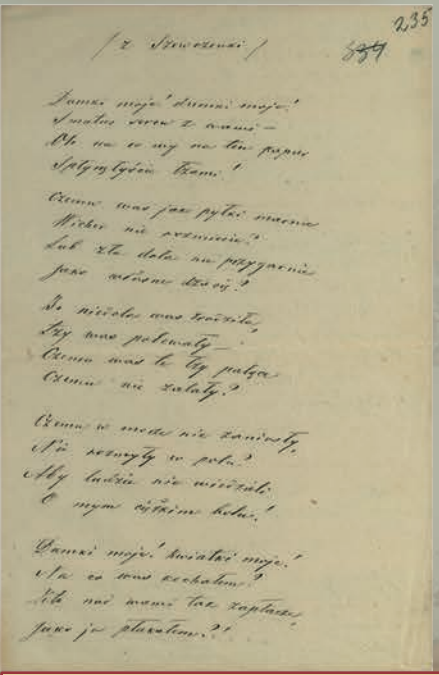 235
334
/ z Szewczenki /
Dumki moje! dumki moje!
Smutno sercu z wami –
Oh na co wy na ten papier
Spłynęłyście łzami!
Czemu was jak pyłki marne
Wicher nie rozmiecie?
Lub zła dola nie przygarnie
Jako własne dziecię?
Bo niedola was zrodziła,
Łzy was polewały –
Czemu was te łzy palące
Czemu nie zalały?
Czemu w morze nie zaniosły,
Nie rozmyły w polu?
Aby ludzie nie wiedzieli
O mym ciężkim bolu!
Dumki moje! kwiatki moje!
Na co was kochałem?
Kto nad wami tak zapłacze,
Jako ja płakałem?!